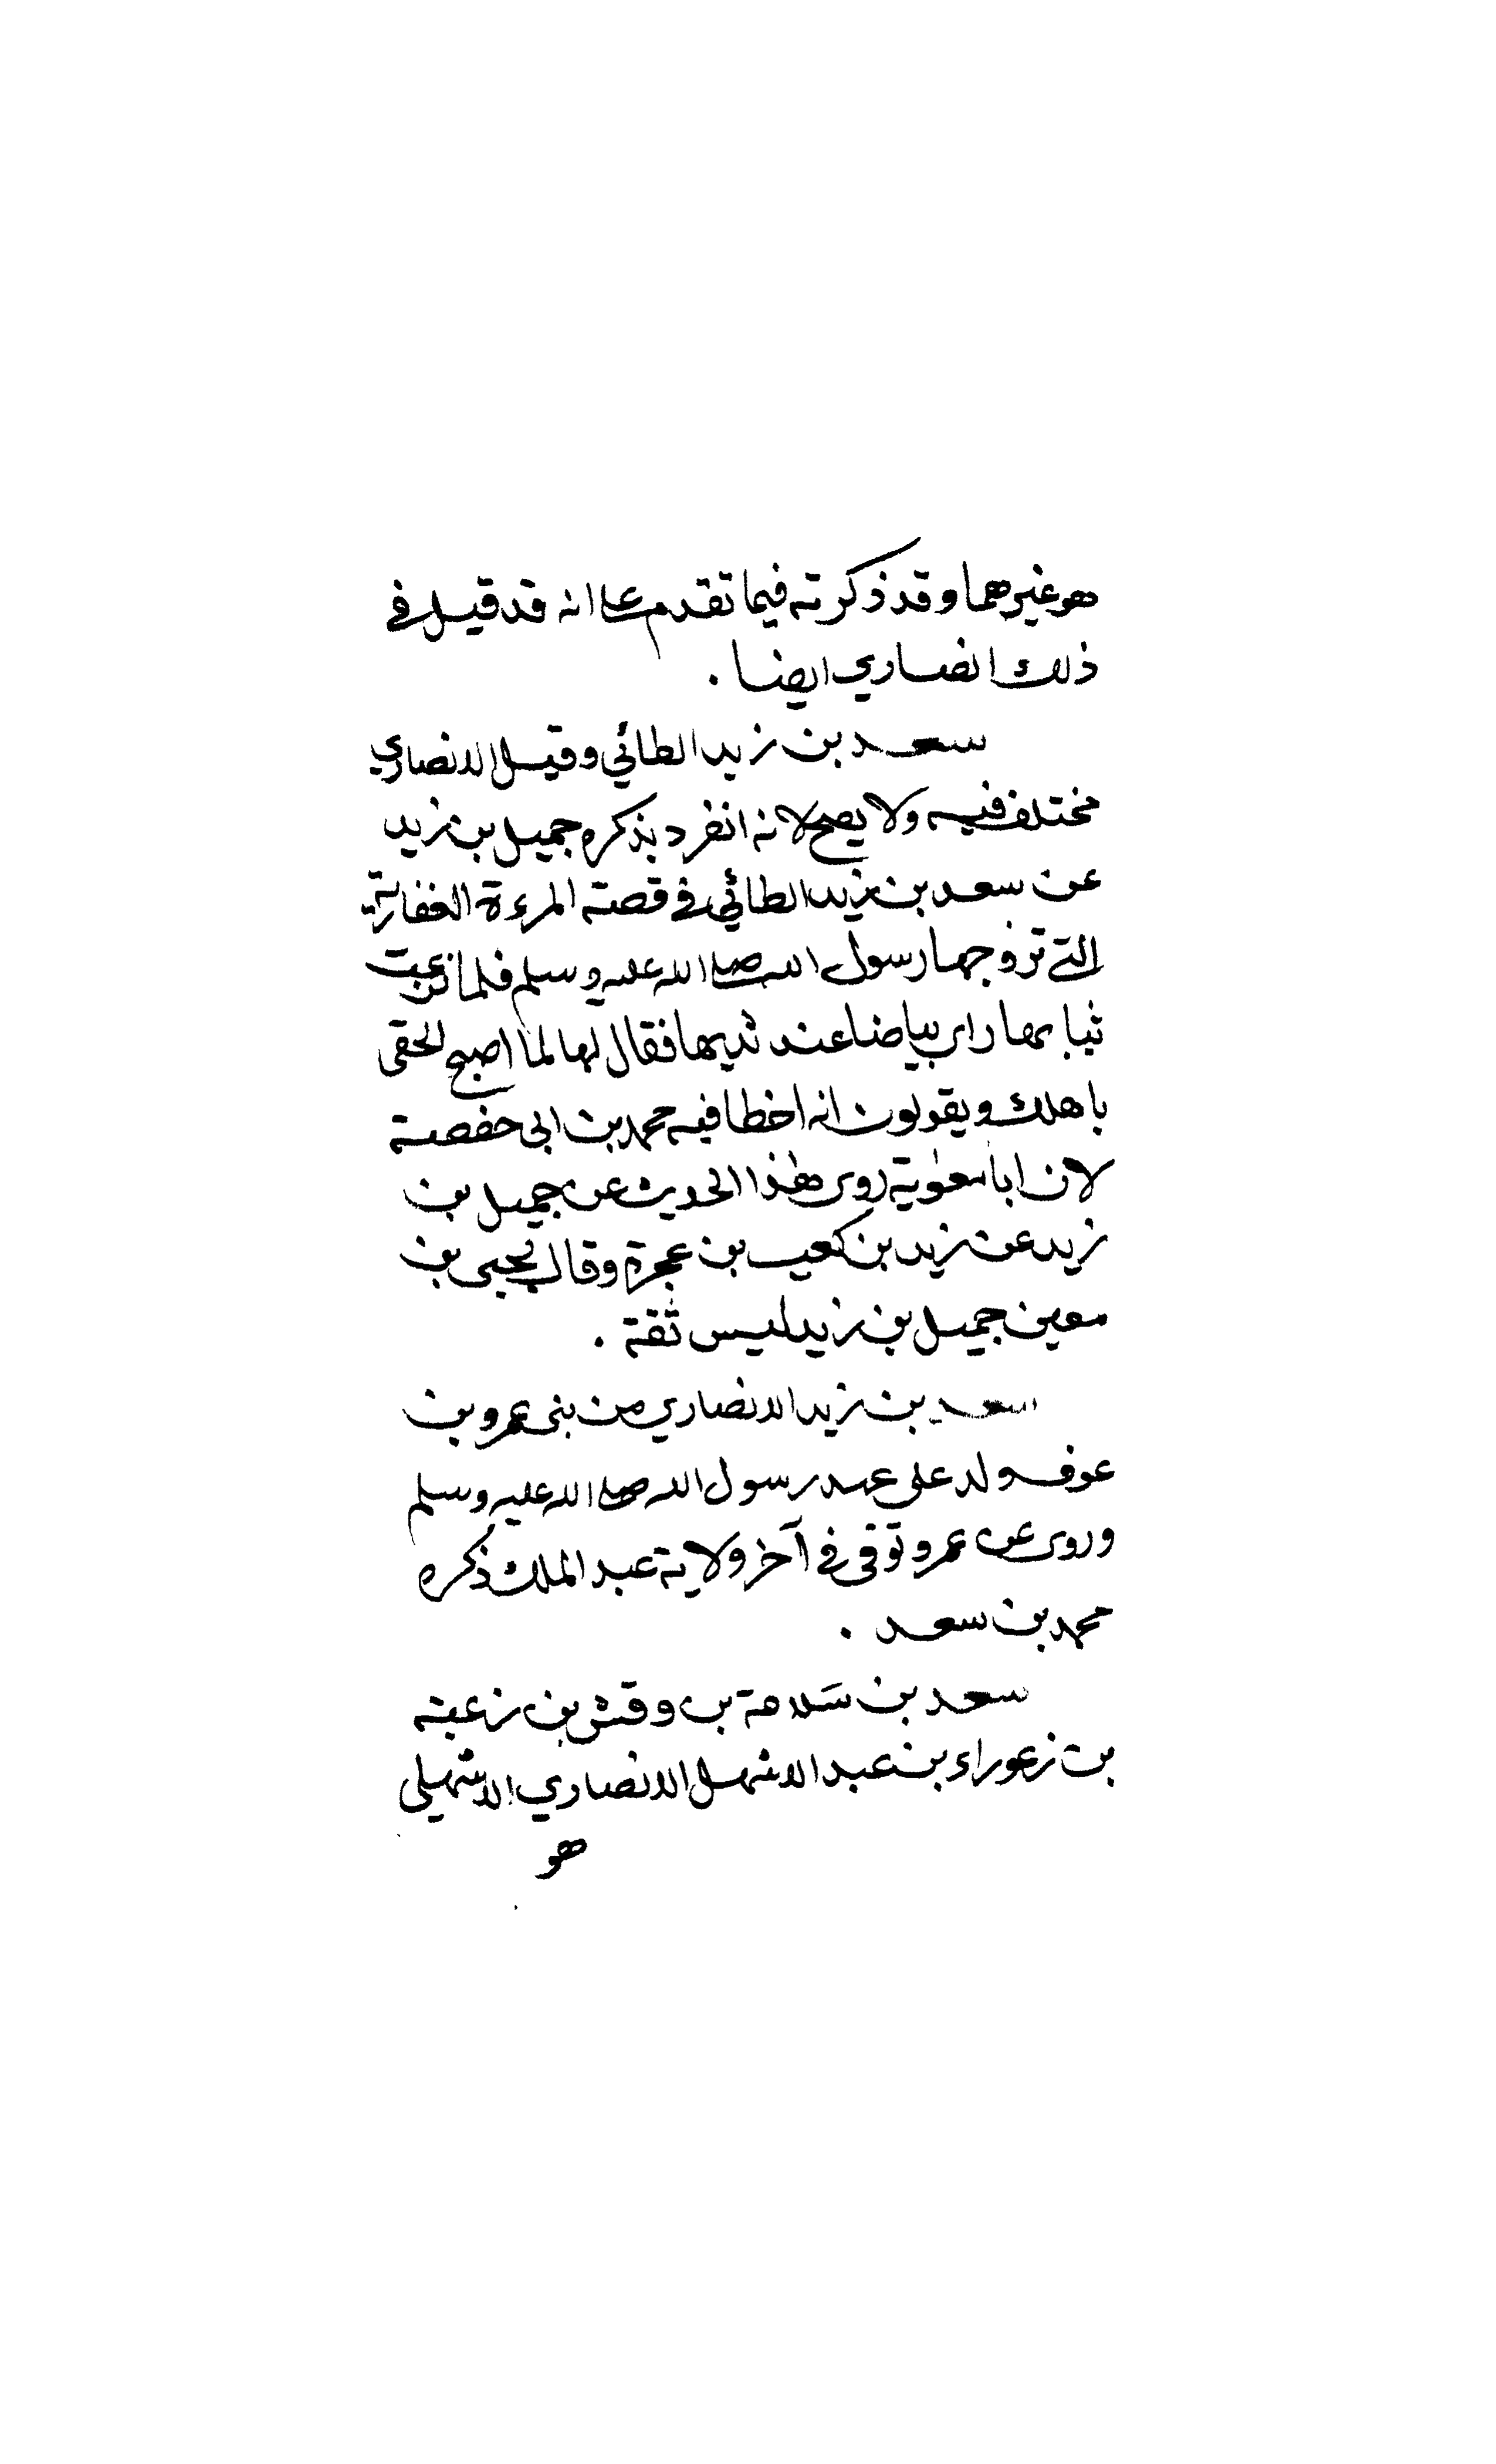 هو غيرهما وقد ذكرته فيما تقدم على انه قد قيل في
ذلك انصاري ايضا .
سعد بن زيد الطائي وقيل الانصاري
مختلف فيه ولا يصح لانه انفرد بذكره جميل بن زيد
عن سعد بن زيد الطائي في قصة المرءة الغفارية
التي تزوجها رسول الله صلى الله عليه وسلم فلما نزعت
ثيابها راى بياضا عند ثديها فقال لها لما اصبح الحقى
باهلك ويقولون انه اخطا فيه محمد بن ابى حفصة
لان ابا معوية روى هذا الحديث عن جميل بن
زيد عن زيد بن كعب بن عجرة وقال يحيى بن
معين جميل بن زيد ليس ثقة .
سعد بن زيد الانصاري من بنى عمرو بن
عوف ولد على عهد رسول الله صلى الله عليه وسلم
وروى عن عمر وتوفى في آخر ولاية عبد الملك ذكره
محمد بن سعد .
سعد بن سَلامة بن وقش بن زعبة
بن زعوراء بن عبد الاشهل الانصاري الاشهلى
هو